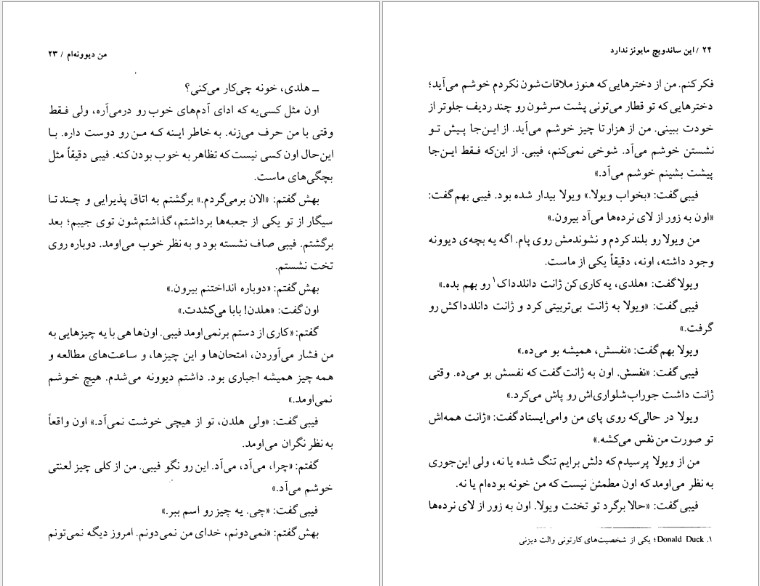 من دیوونه‌ام / ۲۳
ــ هلدی، خونه چی‌کار می‌کنی؟
اون مثل کسی‌یه که ادای آدم‌های خوب رو درمی‌آره، ولی فقط
وقتی با من حرف می‌زنه. به خاطر اینه که من رو دوست داره. با
این‌حال اون کسی نیست که تظاهر به خوب بودن کنه. فیبی دقیقاً مثل
بچگی‌های ماست.
بهش گفتم: «الان برمی‌گردم.» برگشتم به اتاق پذیرایی و چند تا
سیگار از تو یکی از جعبه‌ها برداشتم، گذاشتم‌شون توی جیبم؛ بعد
برگشتم. فیبی صاف نشسته بود و به نظر خوب می‌اومد. دوباره روی
تخت نشستم.
بهش گفتم: «دوباره انداختنم بیرون.»
اون گفت: «هلدن! بابا می‌کشدت.»
گفتم: «کاری از دستم برنمی‌اومد فیبی. اون‌ها هی با یه چیزهایی به
من فشار می‌آوردن، امتحان‌ها و این چیزها، و ساعت‌های مطالعه و
همه چیز همیشه اجباری بود. داشتم دیوونه می‌شدم. هیچ خوشم
نمی‌اومد.»
فیبی گفت: «ولی هلدن، تو از هیچی خوشت نمی‌آد.» اون واقعاً
به نظر نگران می‌اومد.
گفتم: «چرا، می‌آد، می‌آد. این رو نگو فیبی. من از کلی چیز لعنتی
خوشم می‌آد.»
فیبی گفت: «چی. یه چیز رو اسم ببر.»
بهش گفتم: «نمی‌دونم، خدای من نمی‌دونم. امروز دیگه نمی‌تونم
۲۴ / این ساندویچ مایونز ندارد
فکر کنم. من از دخترهایی که هنوز ملاقات‌شون نکردم خوشم می‌آید؛
دخترهایی که تو قطار می‌تونی پشت سرشون رو چند ردیف جلوتر از
خودت ببینی. من از هزار تا چیز خوشم می‌آید. از این‌جا پیش تو
نشستن خوشم می‌آد. شوخی نمی‌کنم، فیبی. از این‌که فقط این‌جا
پیشت بشینم خوشم می‌آد.»
فیبی گفت: «بخواب ویولا.» ویولا بیدار شده بود. فیبی بهم گفت:
«اون به زور از لای نرده‌ها می‌آد بیرون.»
من ویولا رو بلند کردم و نشوندمش روی پام. اگه یه بچه‌ی دیوونه
وجود داشته، اونه، دقیقاً یکی از ماست.
ویولا گفت: «هلدی، یه کاری کن ژانت دانلدداک۱ رو بهم بده.»
فیبی گفت: «ویولا به ژانت بی‌تربیتی کرد و ژانت دانلدداکش رو
گرفت.»
ویولا بهم گفت: «نفسش، همیشه بو می‌ده.»
فیبی گفت: «نفسش. اون به ژانت گفت که نفسش بو می‌ده. وقتی
ژانت داشت جوراب‌شلواری‌اش رو پاش می‌کرد.»
ویولا در حالی‌که روی پای من وامی‌ایستاد گفت: «ژانت همه‌اش
تو صورت من نفس می‌کشه.»
من از ویولا پرسیدم که دلش برایم تنگ شده یا نه، ولی این‌جوری
به نظر می‌اومد که اون مطمئن نیست که من خونه بوده‌ام یا نه.
فیبی گفت: «حالا برگرد تو تختت ویولا. اون به زور از لای نرده‌ها
۱. Donald Duck؛ یکی از شخصیت‌های کارتونی والت دیزنی